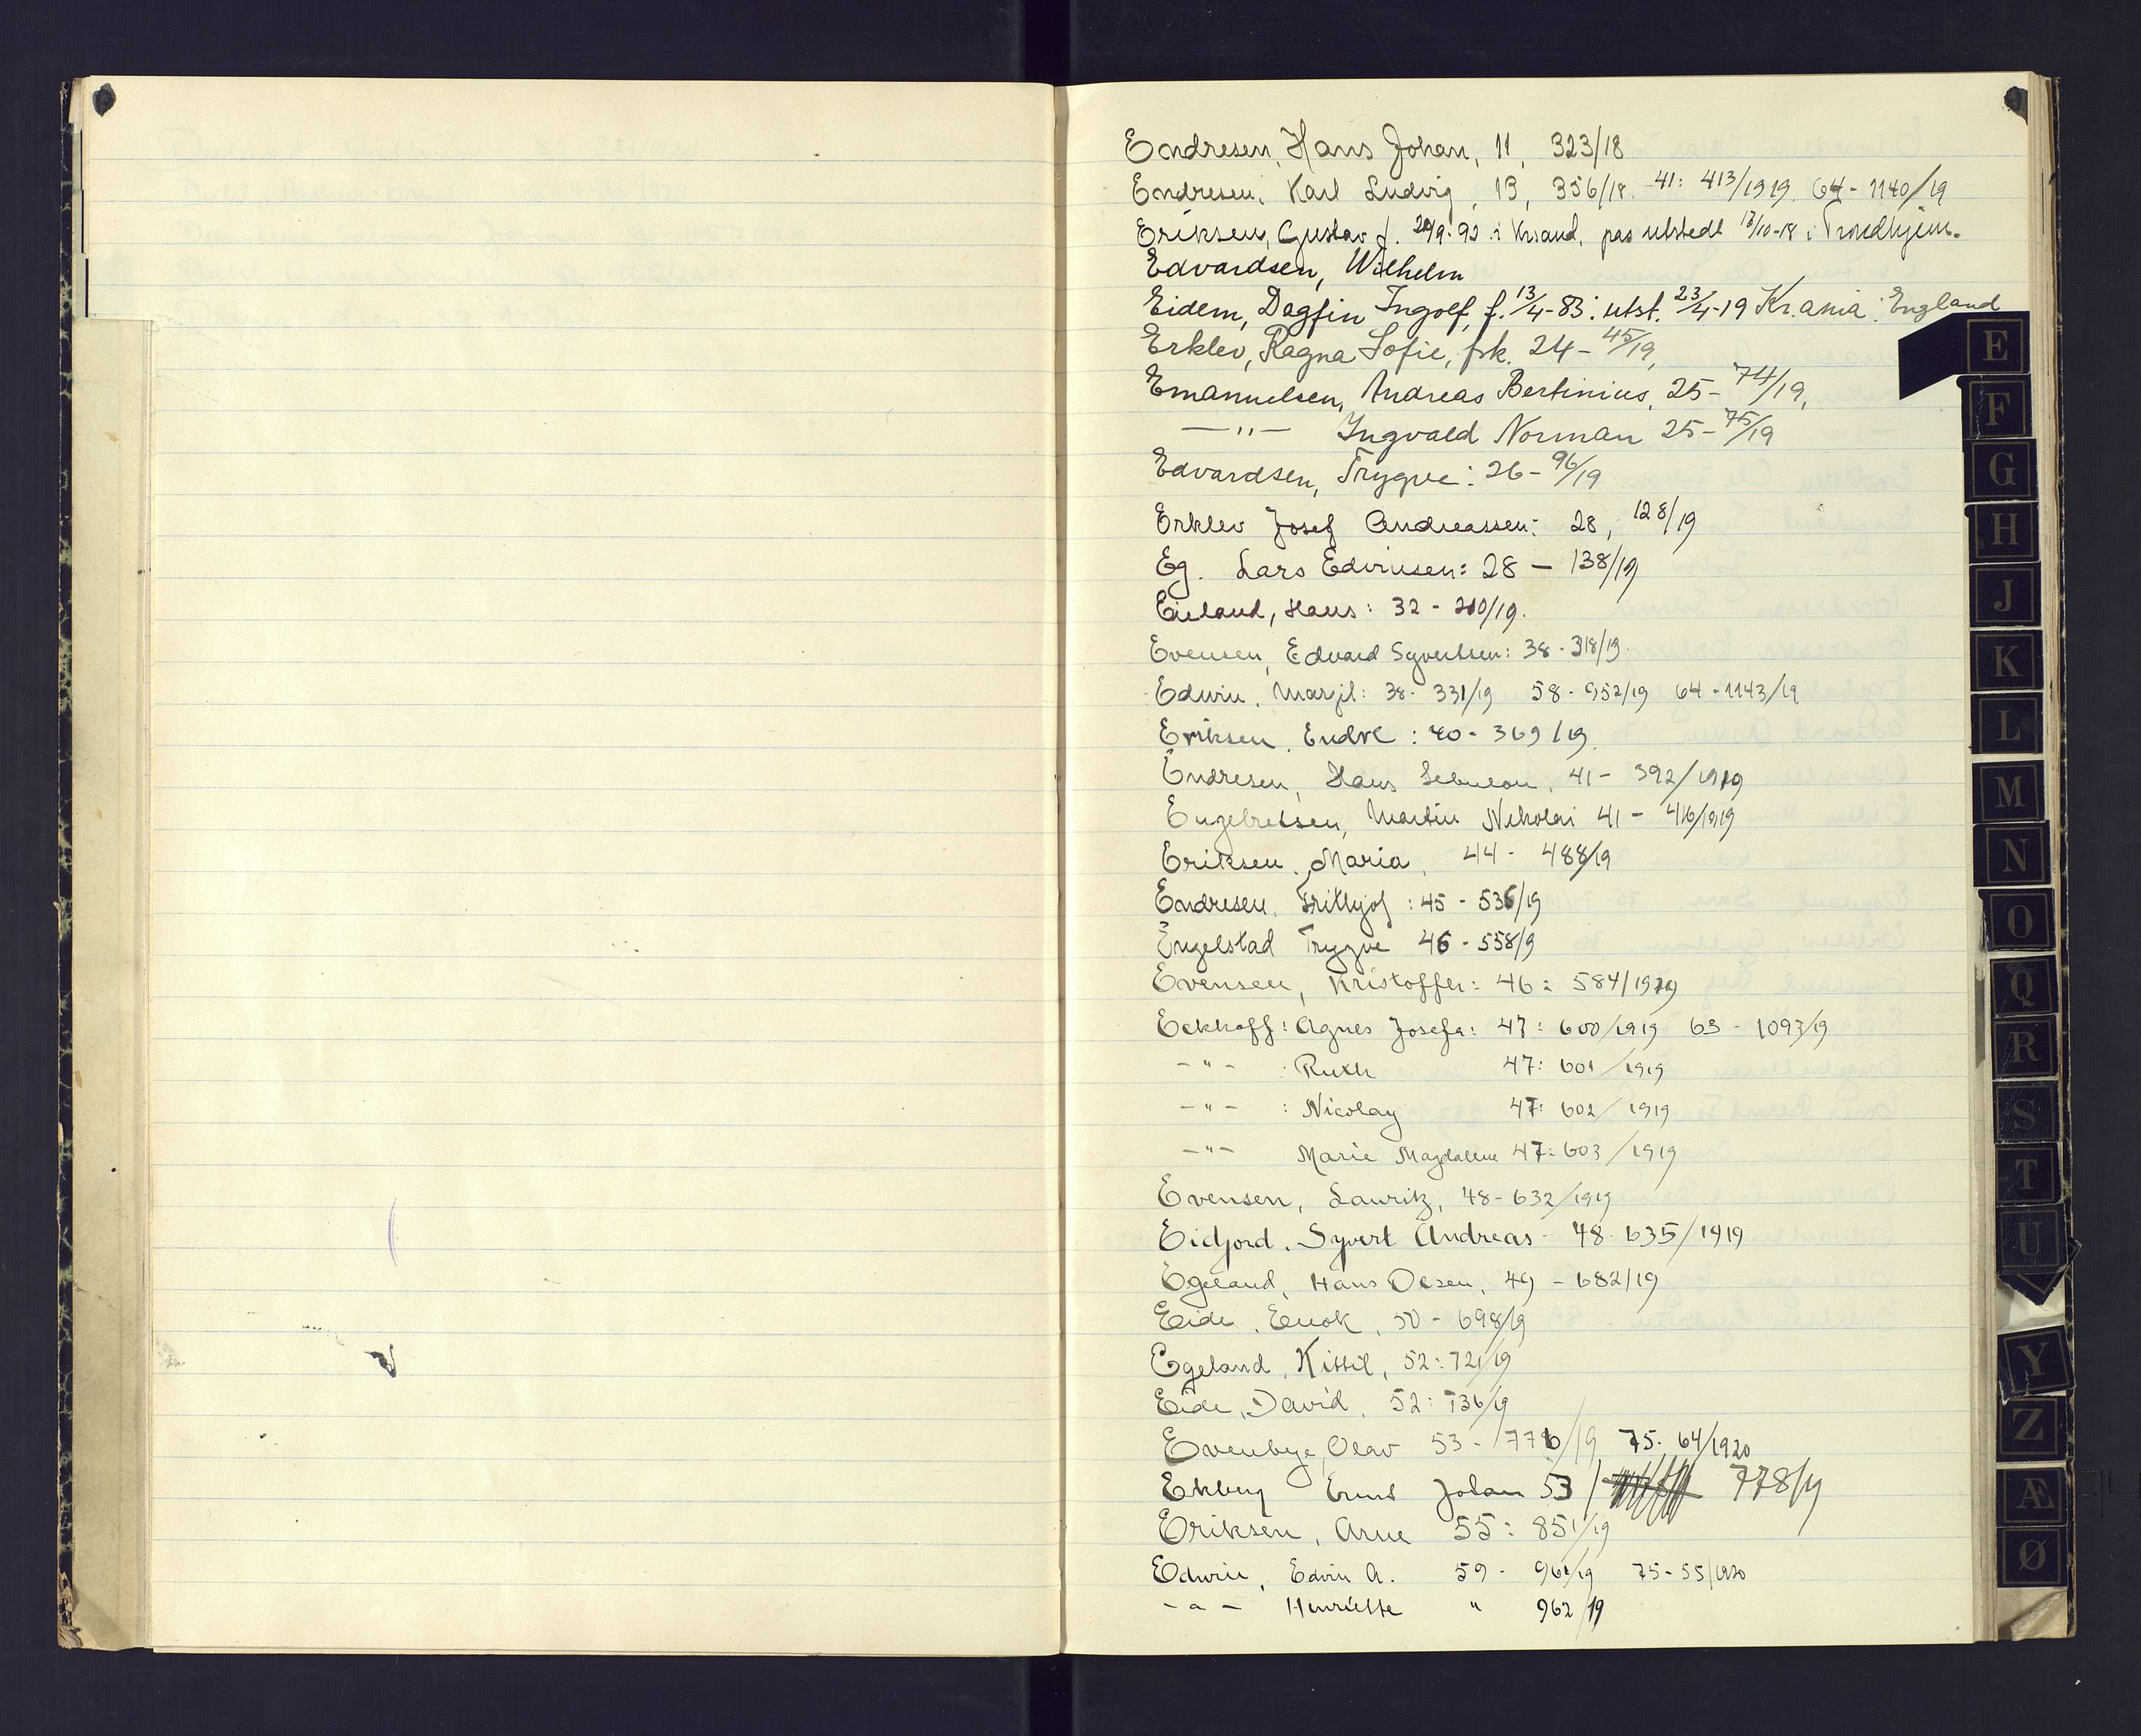 Endresen, Hans Johan, 11, 323/18
Endresen, Karl Ludvig, 13, 356/18. 41: 413/1919. 64 - 1140/19
Eriksen, Gustav f. 29/9-92 i Krsand, pas utstedt 17/10-18 i Trondhjem.
Edvardsen, Wilhelm
Eidem, Dagfin Ingolf, f. 13/4-83: utst. 23/4-19 Kr.ania: England
Erklev, Ragna Sofie, frk. 24 - 45/19,
Emanuelsen, Andreas Bertinius, 25 - 74/19,
— " — Ingvald Norman 25 - 75/19
Edvardsen, Trygve: 26 - 96/19
Erklev Josef Andreassen: 28, 128/19
Eg. Lars Edvinsen: 28 — 138/19
Eieland, Hans: 32 - 210/19.
Evensen, Edvard Syvertsen: 38 - 318/19.
Edwin, 38 - 331/19 58 - 952/19 64 - 1143/19
Eriksen, Endre: 40 - 369/19.
Endresen, Hans Sebulon, 41 - 392/1919
Engebretsen, Martin Nikolai 41 - 416/1919
Eriksen, Maria, 44 - 488/19
Endresen, Frithjof: 45 - 536/19
Engelstad Trygve 46 - 558/9
Evensen, Kristoffer: 46: 584/1919
Eckhoff: Agnes Josefa: 47: 600/1919 63 - 1093/19
- " - : Ruth 47: 601/1919
- " - : Nicolay 47: 602/1919
- " - Marie Magdalene 47: 603/1919
Evensen, Lauritz, 48 - 632/1919
Eidjord, Syvert Andreas - 48 - 635/1919
Egeland, Hans Olsen, 49 - 682/19
Eide, Enok, 50 - 698/19
Egeland, Kittil, 52: 721/19
Eide, David, 52: 736/19
Evenbye, Olav 53 - 776/19 75 - 64/1920
Ekberg Ernst Johan 53 / 778/19
Eriksen, Arne 55: 851/19
Edwin, Edvin A. 59 - 961/19 75 - 55/1920
- " - Henriette " 962/19
E
F
G
H
J
K
L
M
N
O
Q
R
S
T
U
Y
Z
Æ
Ø